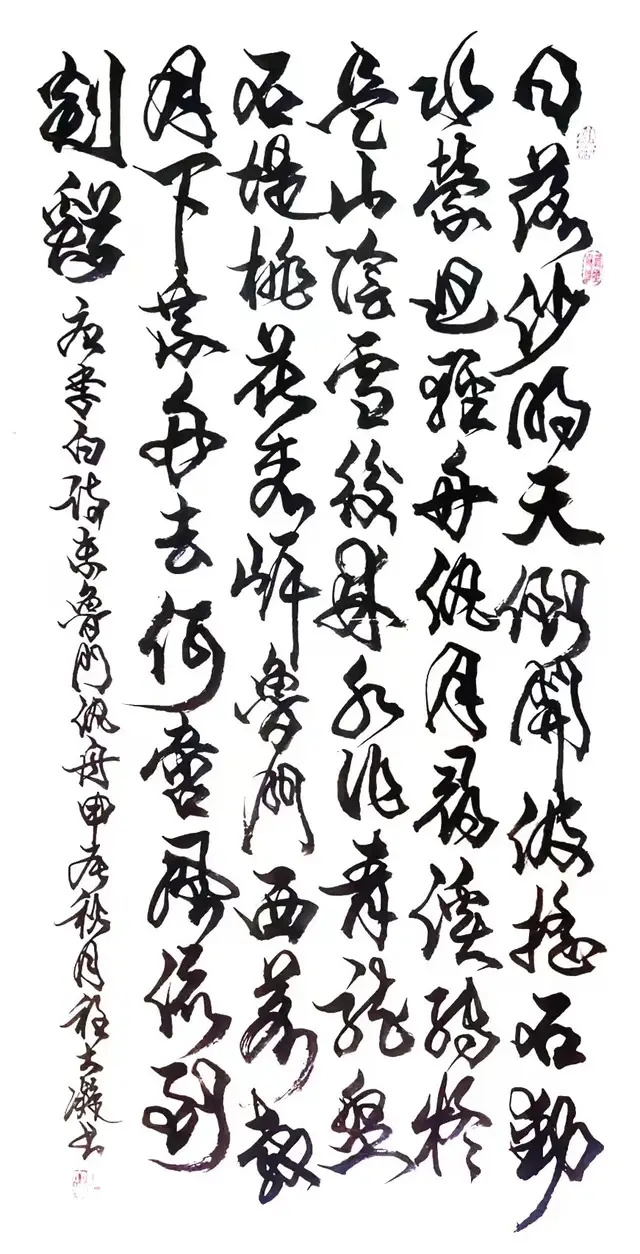 日落沙明天倒開波搖石動
水縈迴輕舟泛月尋溪轉疑
是山陰雪後來水作青龍盤
石堤桃花夾岸魯門西若教
月下乘舟去何啻風流到
剡谿 唐李白詩東魯門泛舟甲辰秋月程大凝书